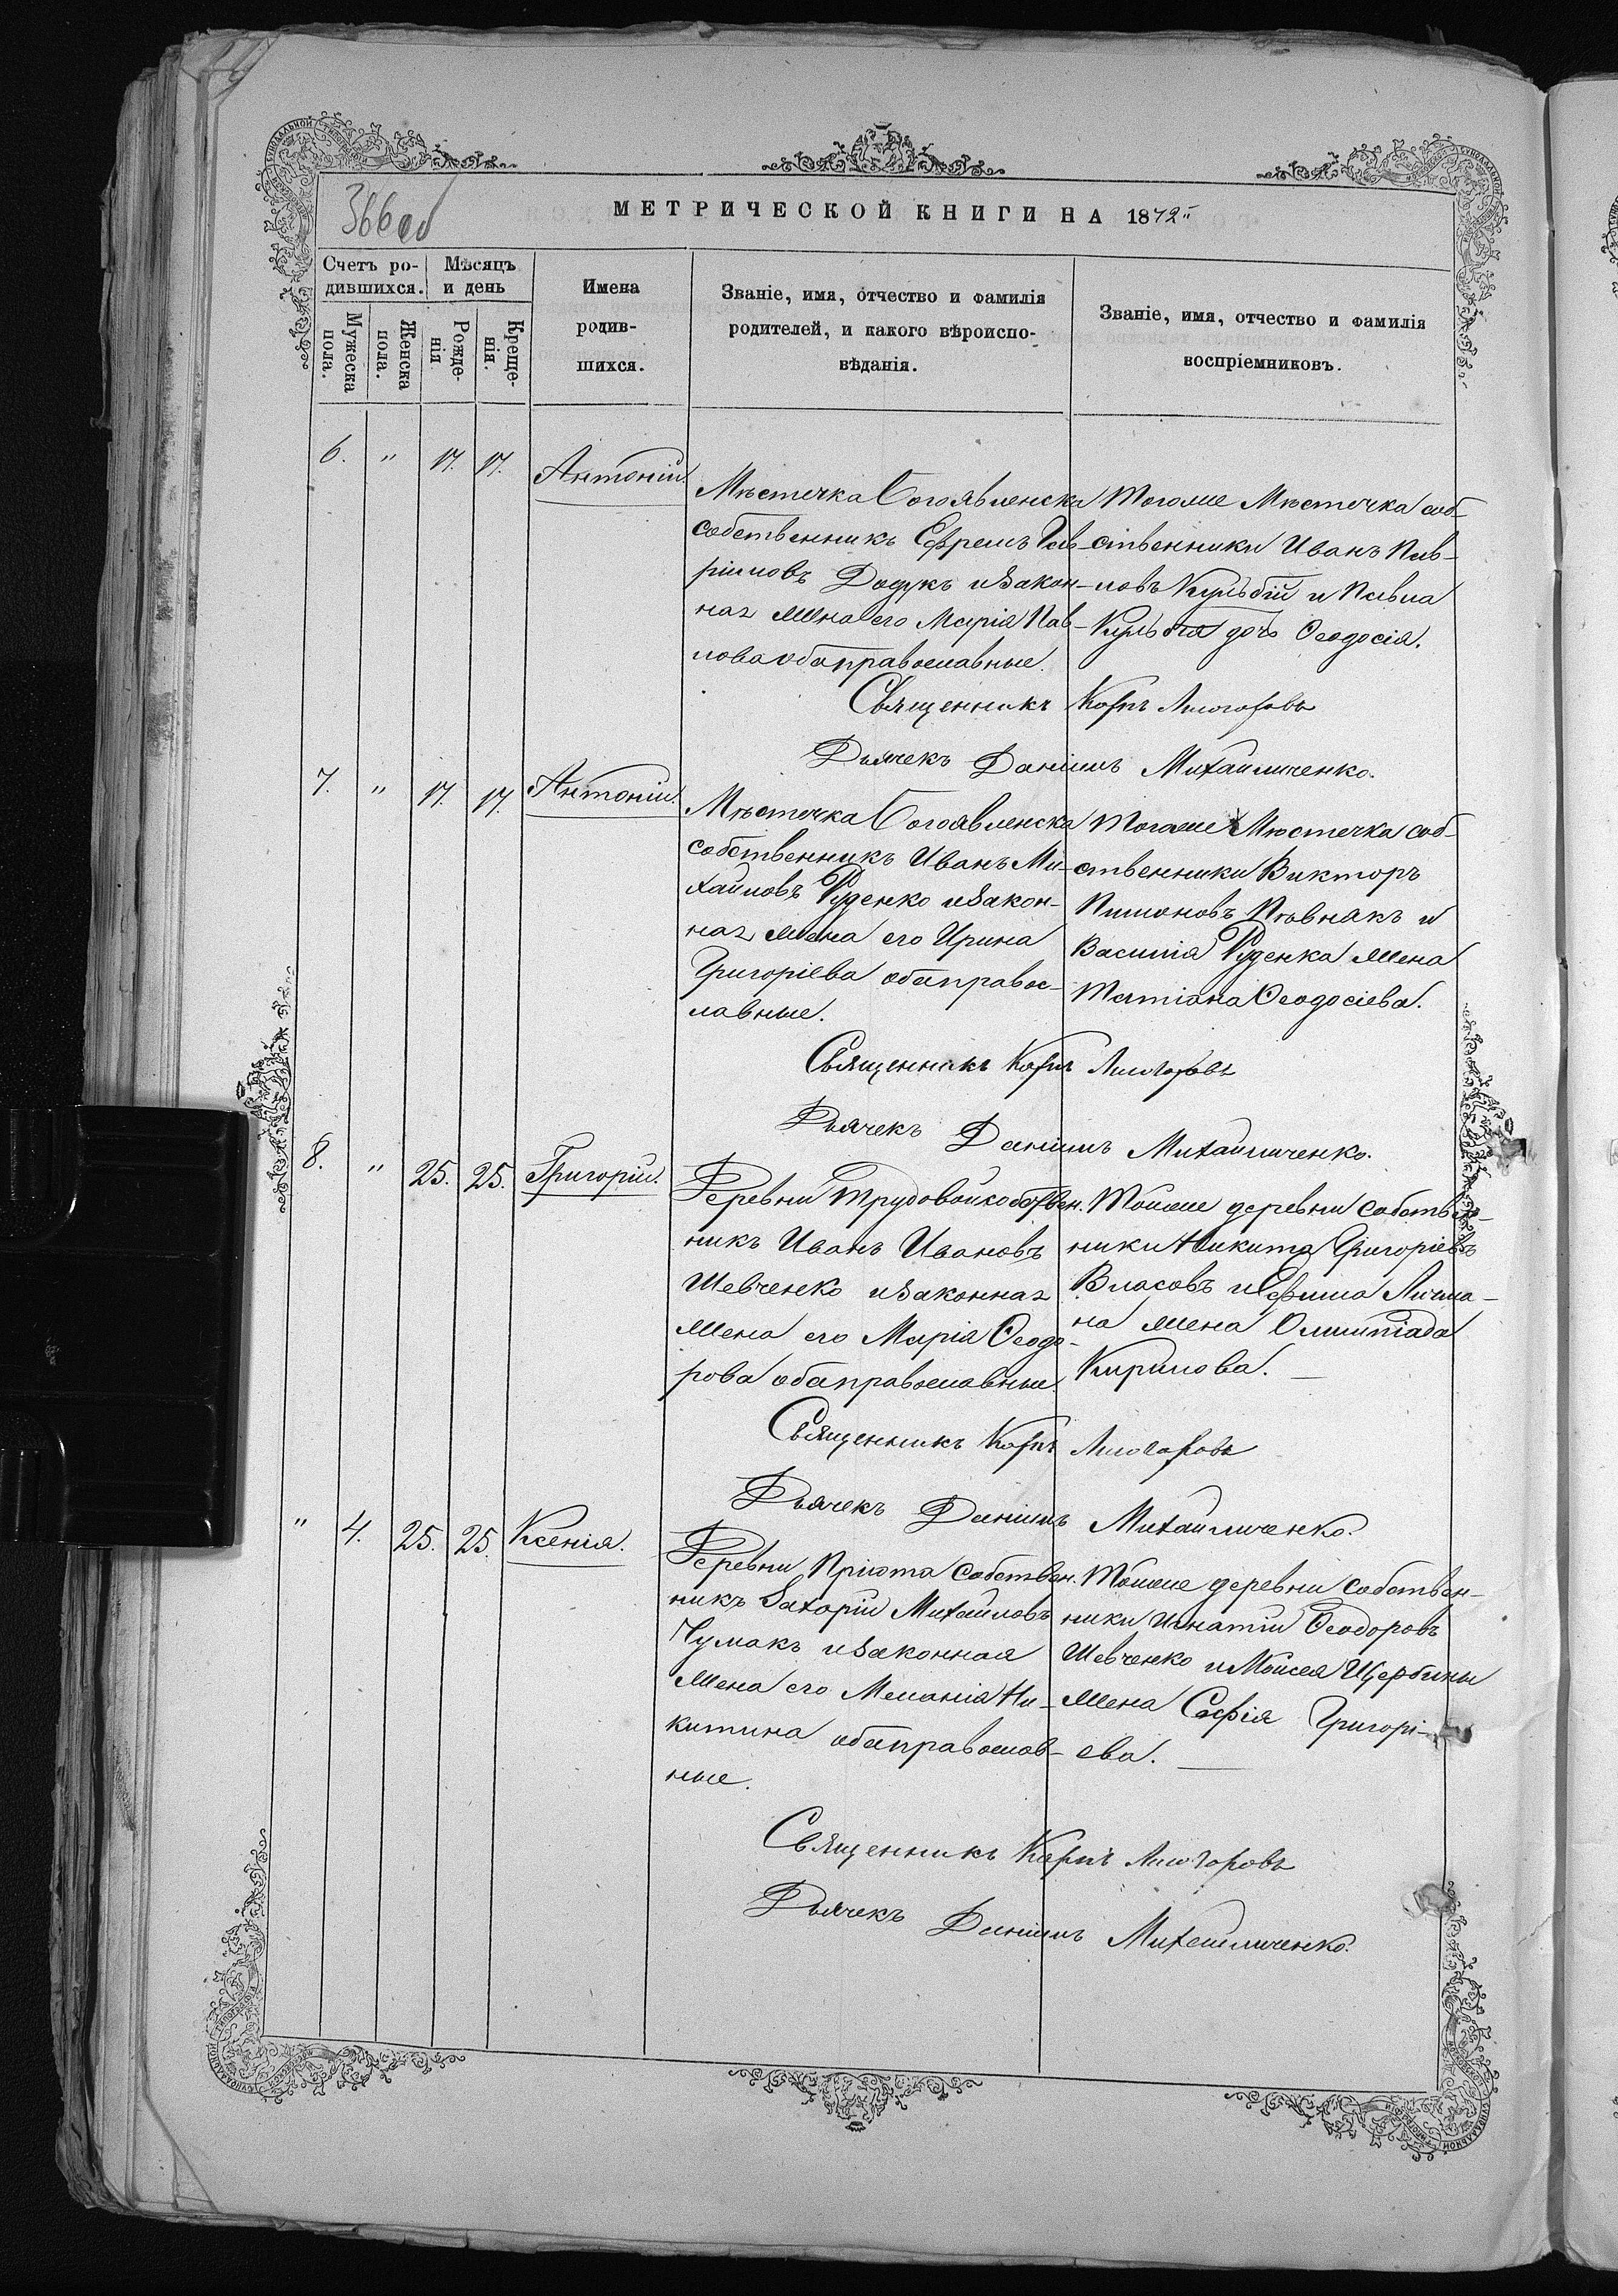 366об
МЕТРИЧЕСКОЙ КНИГИ НА 1872
Счетъ ро-
дившихся.
Мѣсяцъ
и день
Имена
родив-
шихся.
Званіе, имя, отчество и фамилія
родителей, и какого вѣроиспо-
вѣданія.
Званіе, имя, отчество и фамилія
воспріемниковъ.
Мужеска
пола.
Женска
пола.
Рожде-
нія
Креще-
нія.
6. " 17. 17. Антоній.
Мѣстечка Богоявленска
собственникъ Ефремъ Гав-
ріиловъ Додукъ и закон-
ная жена его Марія Пав-
лова оба православные.
Тогоже Мѣстечка соб-
ственники Иванъ Пав-
ловъ Кульбій и Павла
Кульбія дочь Ѳеодосія.
Священникъ Карпъ
Дьячекъ Даніилъ Михайличенко.
7. " 17. 17. Антоній.
Мѣстечка Богоявленска
собственникъ Иванъ Ми-
хайловъ Руденко и закон-
ная жена его Ирина
Григоріева оба правос-
лавные.
Тогоже Мѣстечка соб-
ственники Викторъ
Пивнякъ и
Василія Руденка жена
Татіана Ѳеодосіева.
Священникъ Карпъ
Дьячекъ Даніилъ Михайличенко.
8. " 25. 25. Григорій.
Деревни Трудовой собствен.
никъ Иванъ Ивановъ
Шевченко и законная
жена его Марія Ѳеодо-
рова оба православные.
Тойже деревни собствен-
ники Никита Григоріевъ
Власовъ и Ефима Личма-
на жена Олимпіада
Кирилова.
Священникъ Карпъ
Дьячекъ Даніилъ Михайличенко.
" 4. 25. 25. Ксенія.
Деревни Пріюта собствен.
никъ Захарій Михайловъ
Чумакъ и законная
жена его Меланія Ни-
китина оба православ-
ные.
Тойже деревни собствен-
ники Игнатій Ѳеодоровъ
Шевченко и Моисея Щербины
жена Софія Григорі-
ева.
Священникъ Карпъ
Дьячекъ Даніилъ Михайличенко.